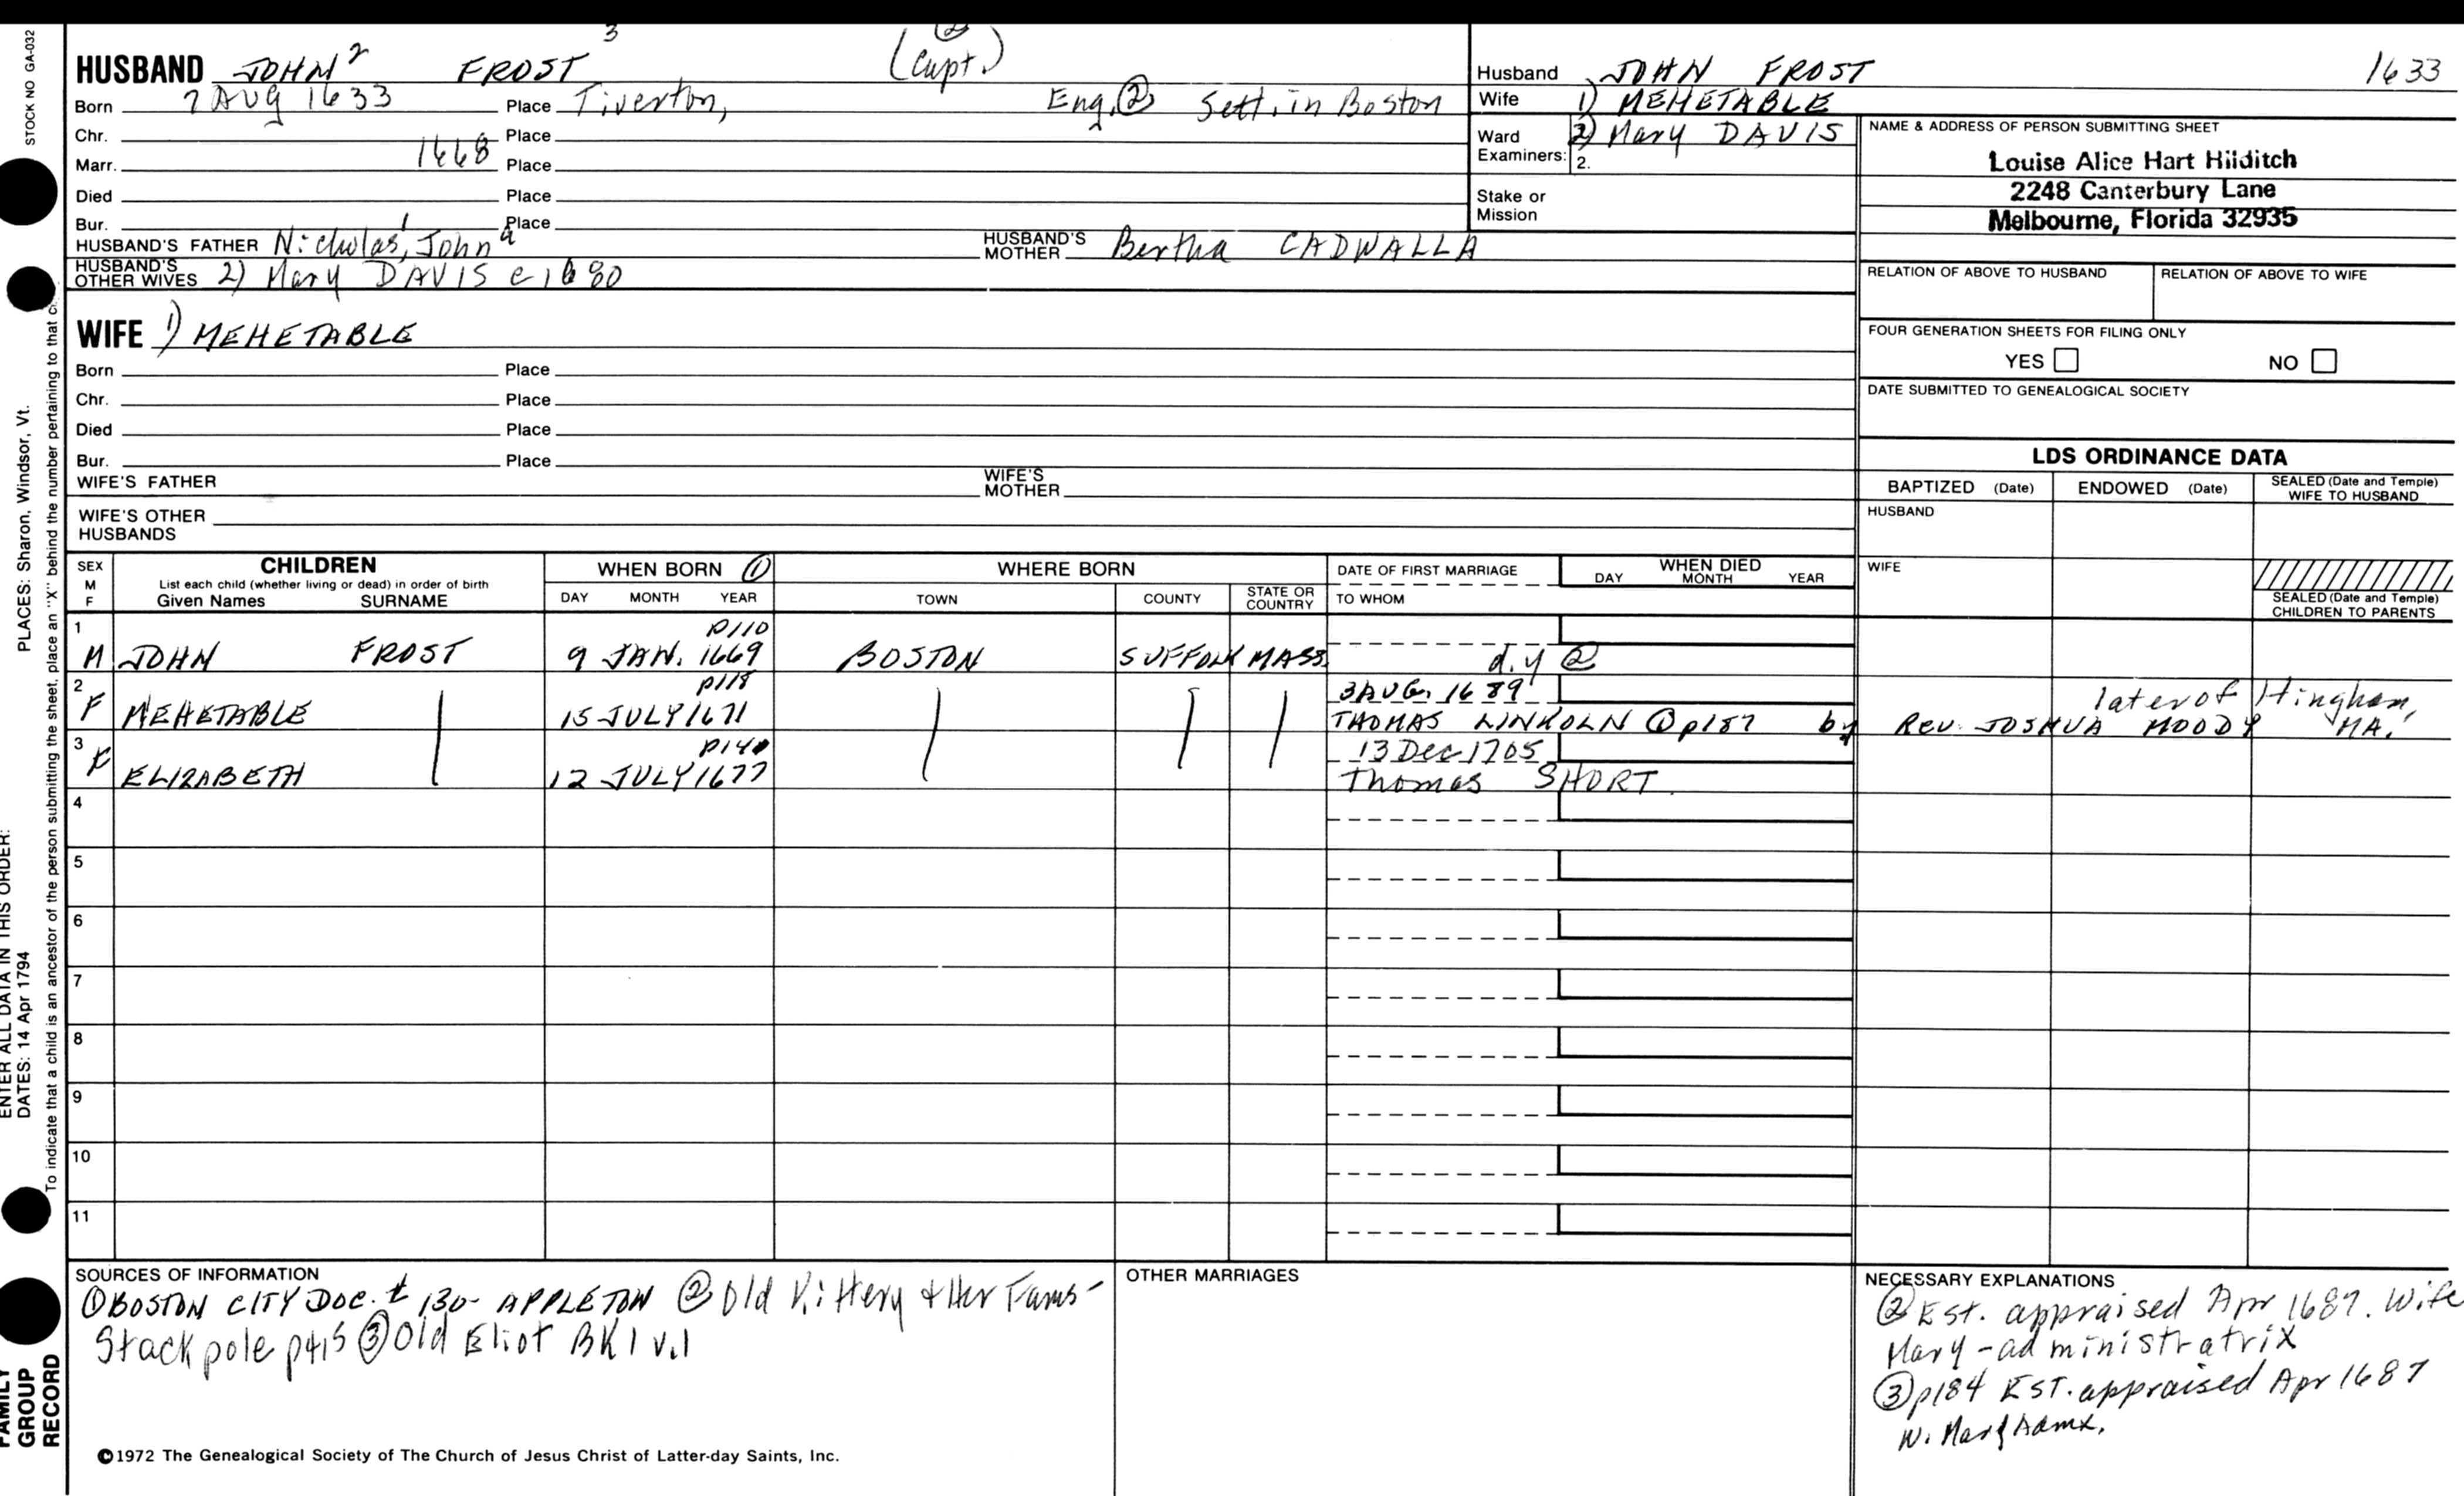 STOCK NO GA-032
HUSBAND JOHN² FROST ³ (Capt.) ②
Born 7 AUG 1633 Place Tiverton, Eng.② Sett. in Boston
Chr. Place
Marr. 1668 Place
Died Place
Bur. Place
HUSBAND'S FATHER Nicholas¹, John ᵃ HUSBAND'S MOTHER Bertha CADWALLA
HUSBAND'S OTHER WIVES 2) Mary DAVIS c 1680
Husband JOHN FROST 1633
Wife 1) MEHETABLE
Ward 2) Mary DAVIS
Examiners: 2.
Stake or Mission
NAME & ADDRESS OF PERSON SUBMITTING SHEET
Louise Alice Hart Hilditch
2248 Canterbury Lane
Melbourne, Florida 32935
RELATION OF ABOVE TO HUSBAND RELATION OF ABOVE TO WIFE
FOUR GENERATION SHEETS FOR FILING ONLY
YES NO
DATE SUBMITTED TO GENEALOGICAL SOCIETY
WIFE 1) MEHETABLE
Born Place
Chr. Place
Died Place
Bur. Place
WIFE'S FATHER WIFE'S MOTHER
WIFE'S OTHER HUSBANDS
LDS ORDINANCE DATA
BAPTIZED (Date) ENDOWED (Date) SEALED (Date and Temple) WIFE TO HUSBAND
HUSBAND
WIFE
SEALED (Date and Temple) CHILDREN TO PARENTS
SEX M F
CHILDREN
List each child (whether living or dead) in order of birth
Given Names SURNAME
WHEN BORN ①
DAY MONTH YEAR
WHERE BORN
TOWN COUNTY STATE OR COUNTRY
DATE OF FIRST MARRIAGE
TO WHOM
WHEN DIED
DAY MONTH YEAR
1 p110
M JOHN FROST 9 JAN. 1669 BOSTON SUFFOLK MASS. d.y ②
2 p118 3 AUG. 1689 later of Hingham,
F MEHETABLE 15 JULY 1671 THOMAS LINKOLN ① p187 by Rev. JOSHUA MOODY MA.
3 p140 13 Dec 1705
F ELIZABETH 12 JULY 1677 Thomas SHORT
4
5
6
7
8
9
10
11
SOURCES OF INFORMATION
① BOSTON CITY DOC. # 130- APPLETON ② Old Kittery & Her Fams-
Stackpole p415 ③ Old Eliot BK 1 v.1
OTHER MARRIAGES
NECESSARY EXPLANATIONS
② Est. appraised Apr 1687. Wife
Mary - administratrix
③ p184 EST. appraised Apr 1687
W. Mary Admx.
©1972 The Genealogical Society of The Church of Jesus Christ of Latter-day Saints, Inc.
PLACES: Sharon, Windsor, Vt.
ENTER ALL DATA IN THIS ORDER:
DATES: 14 Apr 1794
To indicate that a child is an ancestor of the person submitting the sheet, place an "X" behind the number pertaining to that
FAMILY
GROUP
RECORD